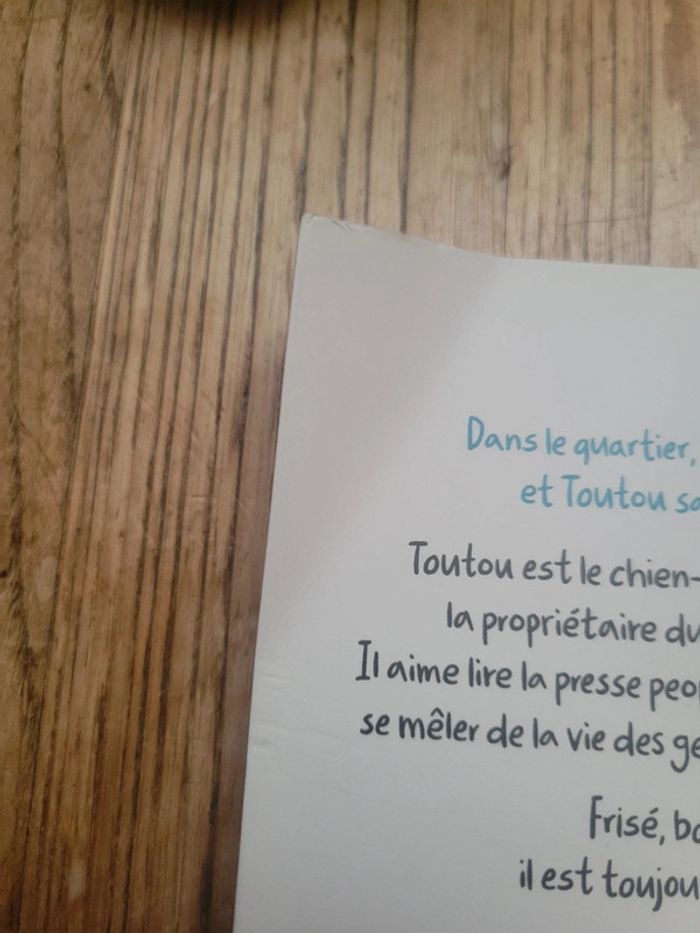 Dans le quartier,
et Toutou
Toutou est le chien-
la propriétaire
Il aime lire la presse
se mêler de la vie des
Frisé,
il est